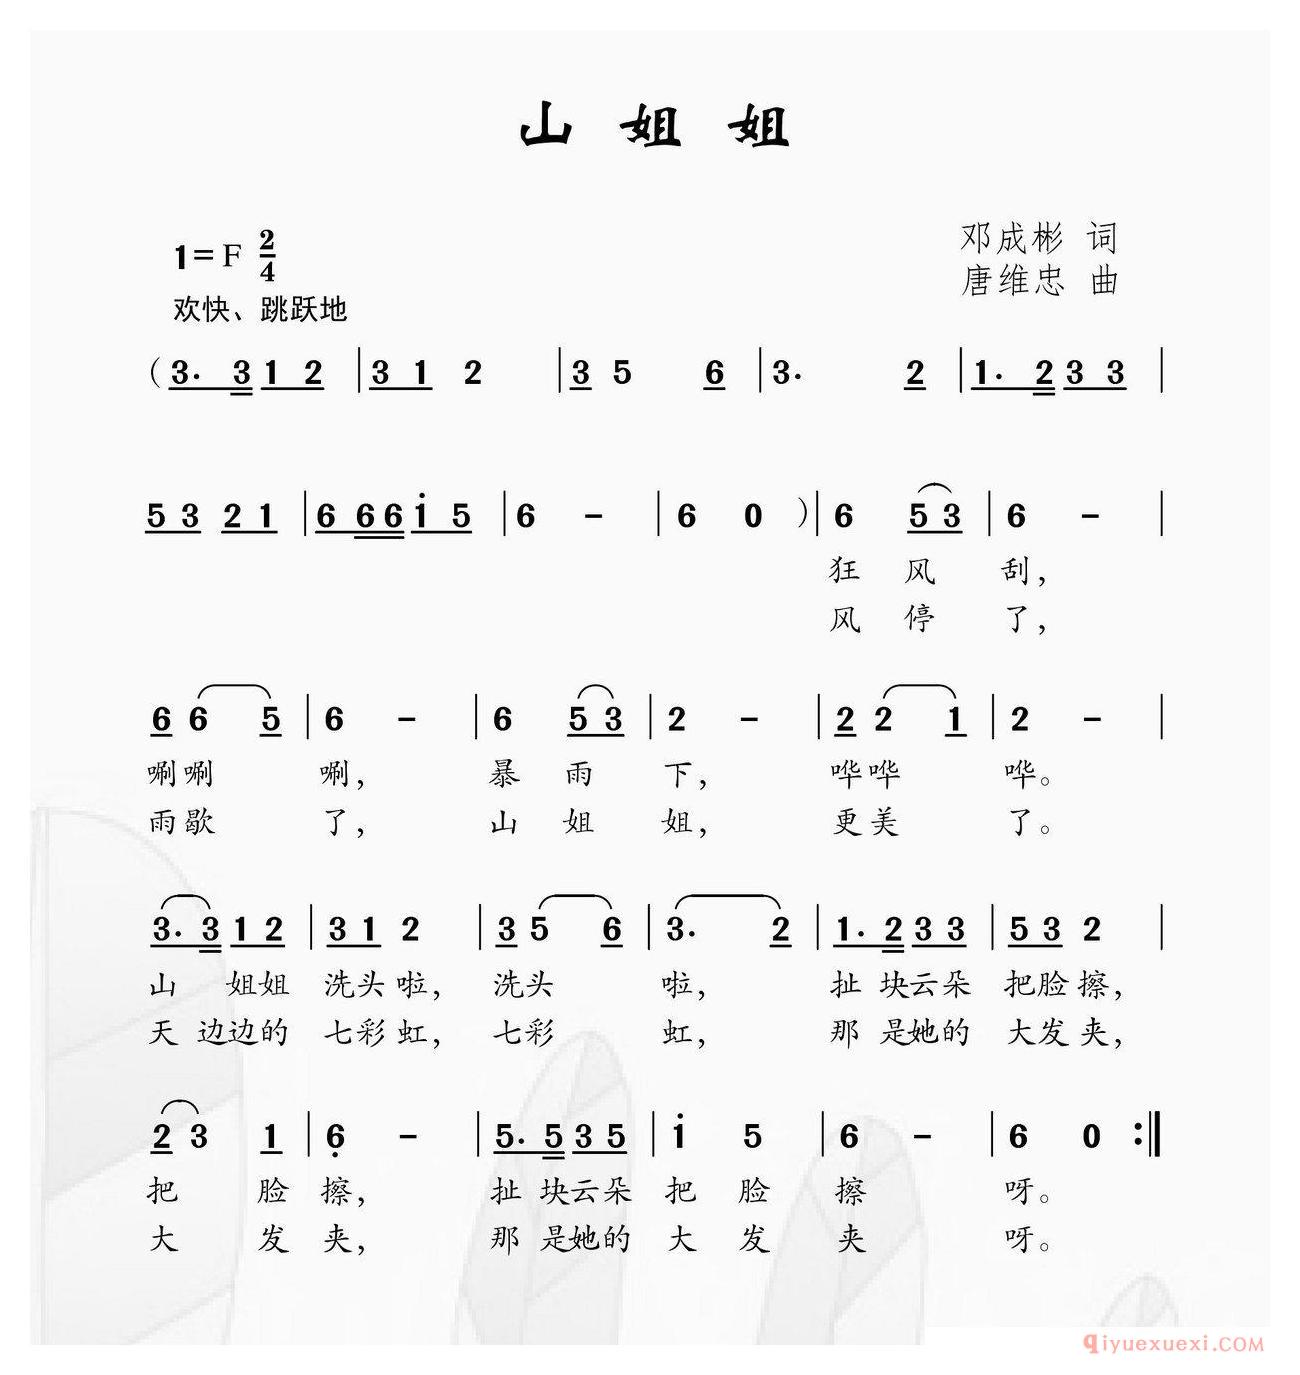 山 姐 姐
1=F 2/4
邓成彬 词
唐维忠 曲
欢快、跳跃地
(3. 3 1 2 | 3 1 2 | 3 5 6 | 3. 2 | 1. 2 3 3 |
5 3 2 1 | 6 6 6 i 5 | 6 - | 6 0 ) | 6 5 3 | 6 - |
狂 风 刮,
风 停 了,
6 6 5 | 6 - | 6 5 3 | 2 - | 2 2 1 | 2 - |
唰唰 唰, 暴 雨 下, 哗哗 哗。
雨歇 了, 山 姐 姐, 更美 了。
3. 3 1 2 | 3 1 2 | 3 5 6 | 3. 2 | 1. 2 3 3 | 5 3 2 |
山 姐姐 洗头啦, 洗头 啦, 扯 块云朵 把脸擦,
天 边边的 七彩虹, 七彩 虹, 那 是她的 大发夹,
2 3 1 | 6 - | 5. 5 3 5 | i 5 | 6 - | 6 0 :‖
把 脸 擦, 扯 块云朵 把 脸 擦 呀。
大 发 夹, 那 是她的 大 发 夹 呀。
qiyuexuexi.COM